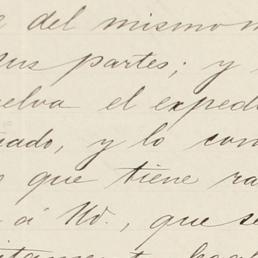 e del mismo m
sus partes; y
uelva el exped
uado, y lo com
que tiene ra
á Ud., que se